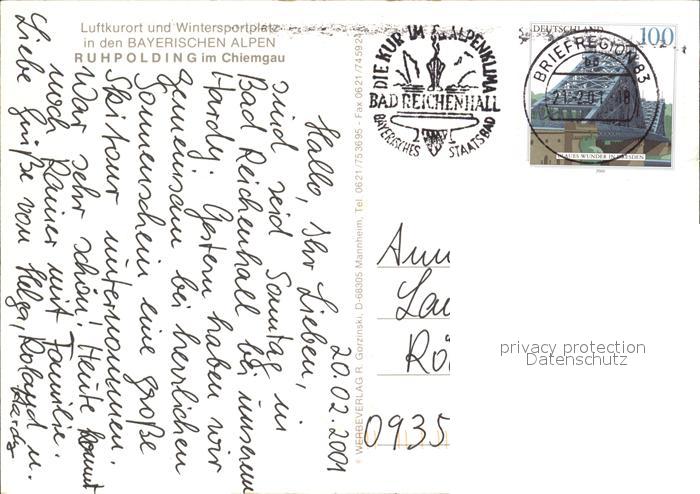 Luftkurort und Wintersportplatz
in den BAYERISCHEN ALPEN
RUHPOLDING im Chiemgau
20.02.2001
Hallo, Ihr Lieben,
sind seid Samstag in
Bad Reichenhall bei unserem
Hardy. Gestern haben wir
gemeinsam bei herrlichen
Sonnenschein eine große
Skitour unternommen.
War sehr schön! Heute kommt
noch Rainer mit Familie.
Liebe Grüße von Helga, Roland u.
Hardy
© WERBEVERLAG R. Gorzinski, D-68305 Mannheim, Tel. 0621/753695 - Fax 0621/745924
DIE KUR IM ALPENKLIMA
BAD REICHENHALL
BAYERISCHES STAATSBAD
BRIEFREGION 83
21.-2.01.-18
DEUTSCHLAND 100
BLAUES WUNDER IN DRESDEN
2000
Ann
Lau
Rö
0935
privacy protection
Datenschutz